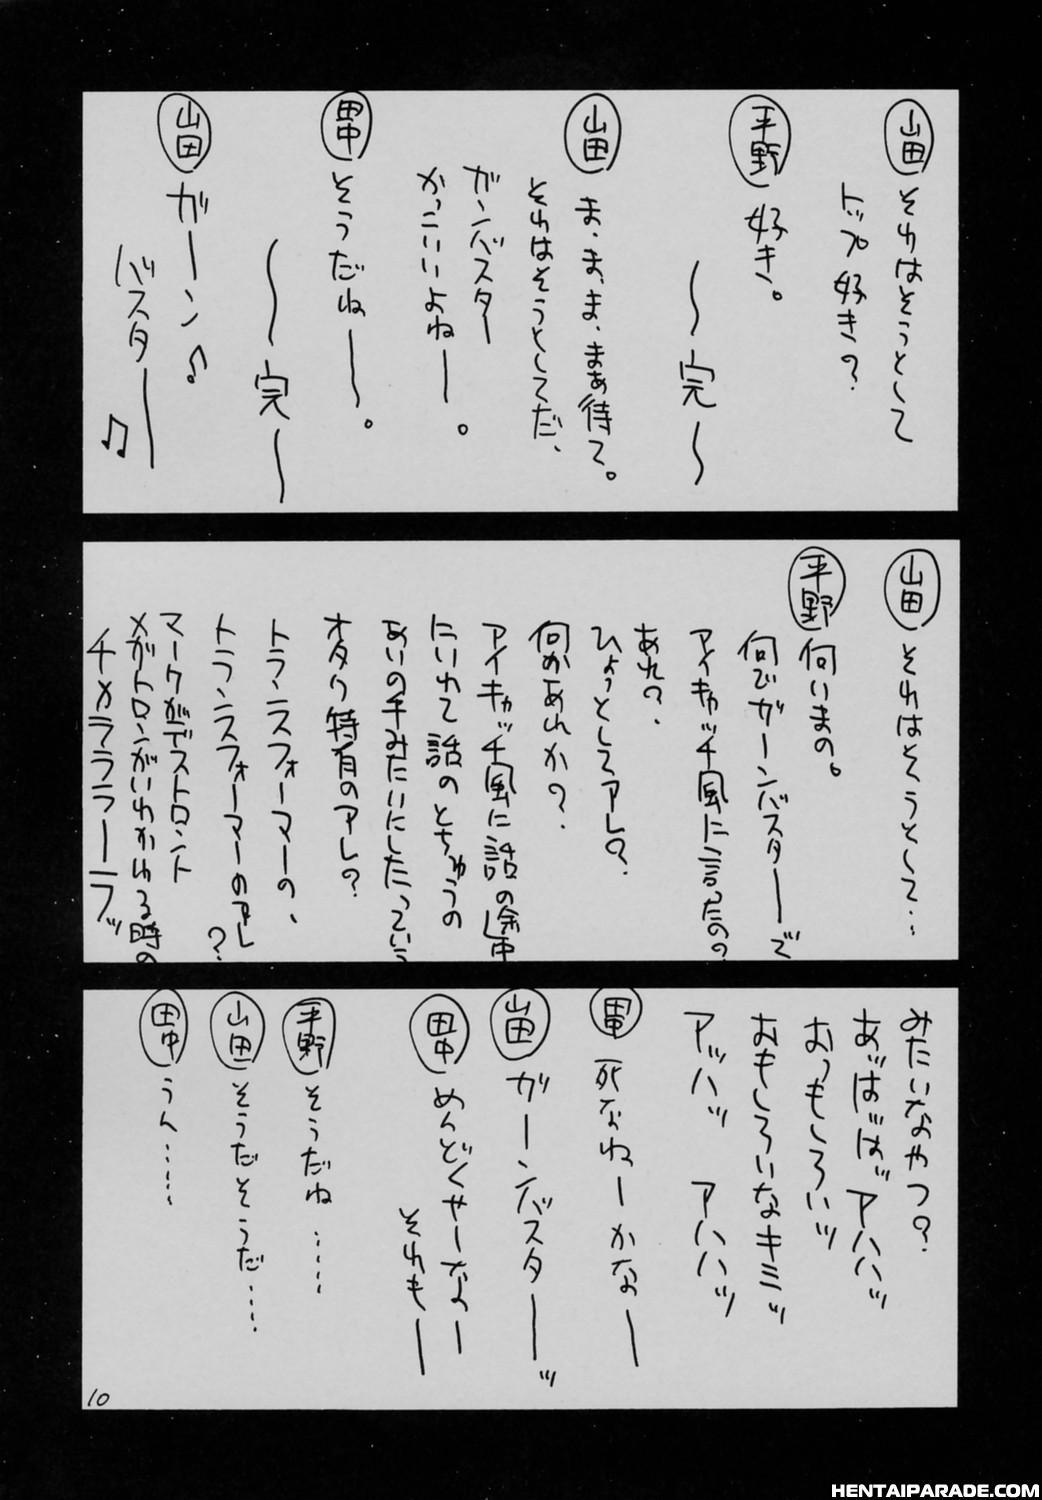 山田 それはそうとして
トップ好き?
平野 好き。
～完～
山田 ま、ま、ま、まぁ待て。
それはそうとしてだ、
ガンバスター
かっこいいよねー。
田中 そうだねー。
～完～
山田 ガーン♪
バスター♫
山田 それはそうとして…
平野 何いまの。
何でガーンバスターで
アイキャッチ風に言ったの?
あれ?
ひょっとしてアレ?
何かあれか?
アイキャッチ風に話の途中
にいれて話のとちゅうの
あいの手みたいにしたっていう
オタク特有のアレ?
トランスフォーマーの、
トランスフォーマーのアレ?
マークがデストロント
メガトロンがいわかれる時の
チメラララーラッ
みたいなやつ?
あッはッはッアハハッ
おっもしろいッ
おもしろいなキミッ
アッハッ アハハッ
田中 死なねーかなー
山田 ガーンバスターーッ
田中 めんどくせーなー
それもー
平野 そうだね……
山田 そうだそうだ……
田中 うん……
10
HENTAIPARADE.COM